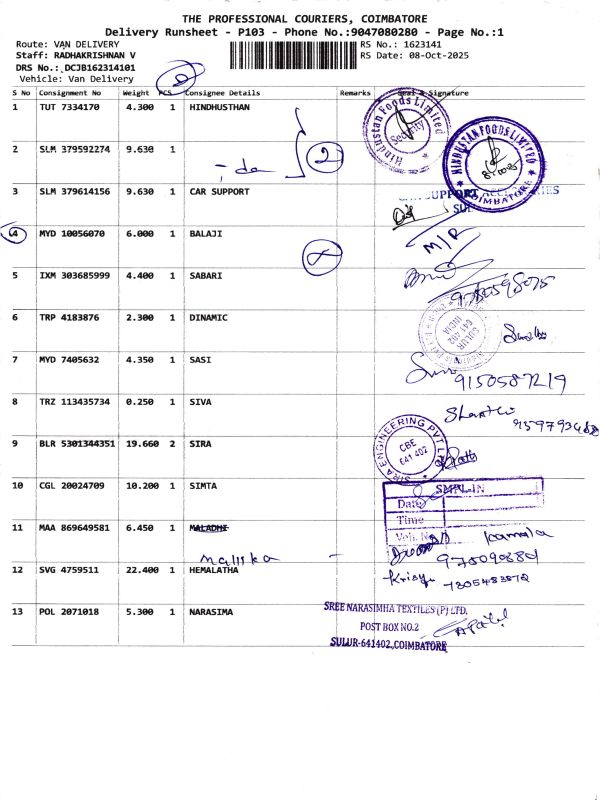 THE PROFESSIONAL COURIERS, COIMBATORE
Delivery Runsheet - P103 - Phone No.:9047080280 - Page No.:1
Route: VAN DELIVERY RS No.: 1623141
Staff: RADHAKRISHNAN V RS Date: 08-Oct-2025
DRS No.: DCJB162314101
Vehicle: Van Delivery
S No Consignment No Weight PCS Consignee Details Remarks Seal & Signature
1 TUT 7334170 4.300 1 HINDHUSTHAN
Hindustan Foods Limited
Security
2 SLM 379592274 9.630 1
- do 2
HINDUSTAN FOODS LIMITED
COIMBATORE
3 SLM 379614156 9.630 1 CAR SUPPORT
4 MYD 10056070 6.000 1 BALAJI
M/R
5 IXM 303685999 4.400 1 SABARI
6 TRP 4183876 2.300 1 DINAMIC
SULUR
641 402
INDIA
7 MYD 7405632 4.350 1 SASI
9150587219
8 TRZ 113435734 0.250 1 SIVA
Shanthi
9 BLR 5301344351 19.660 2 SIRA
SIRA ENGINEERING PVT LTD
CBE
641 402
10 CGL 20024709 10.200 1 SIMTA
Date
Time
Veh. No
11 MAA 869649581 6.450 1 MALADHE
Mallika - Kamala
12 SVG 4759511 22.400 1 HEMALATHA
13 POL 2071018 5.300 1 NARASIMA
SREE NARASIMHA TEXTILES (P) LTD.
POST BOX NO.2
SULUR-641402, COIMBATORE